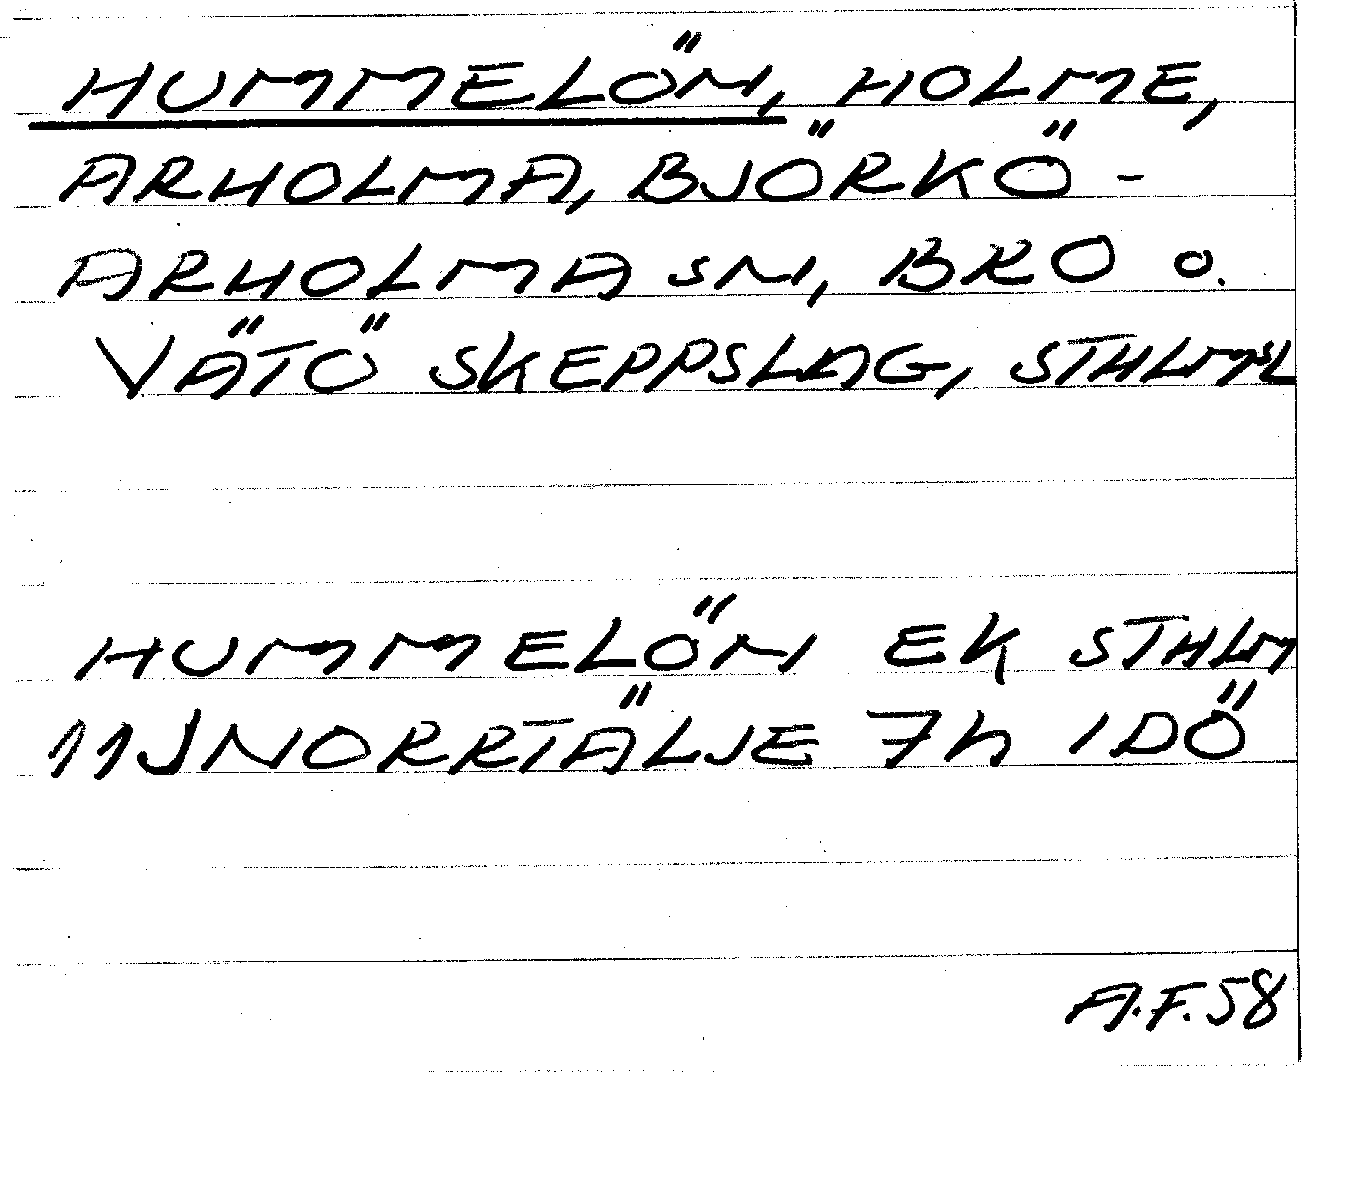 HUMMELÖN, HOLME,
ARHOLMA, BJÖRKÖ-
ARHOLMA SN, BRO o.
VÄTÖ SKEPPSLAG, STHLMSL
HUMMELÖN EK STHLM
11J NORRTÄLJE 7h IDÖ
A.F. 58